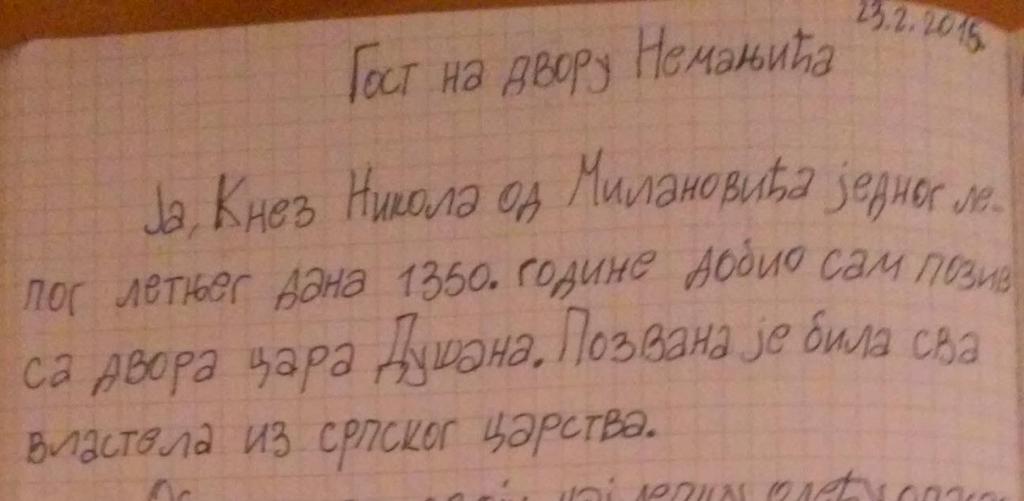 23.2.2015.
Гост на двору Немањића
Ја, Кнез Никола од Милановића једног ле-
пог летњег дана 1350. године добио сам позив
са двора цара Душана. Позвана је била сва
властела из српског царства.